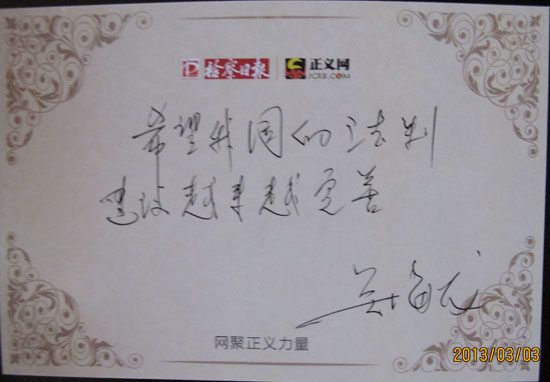 检察日报 正义网
JCRB.COM
希望我国的法制
建设越来越完善
网聚正义力量
2013/03/03